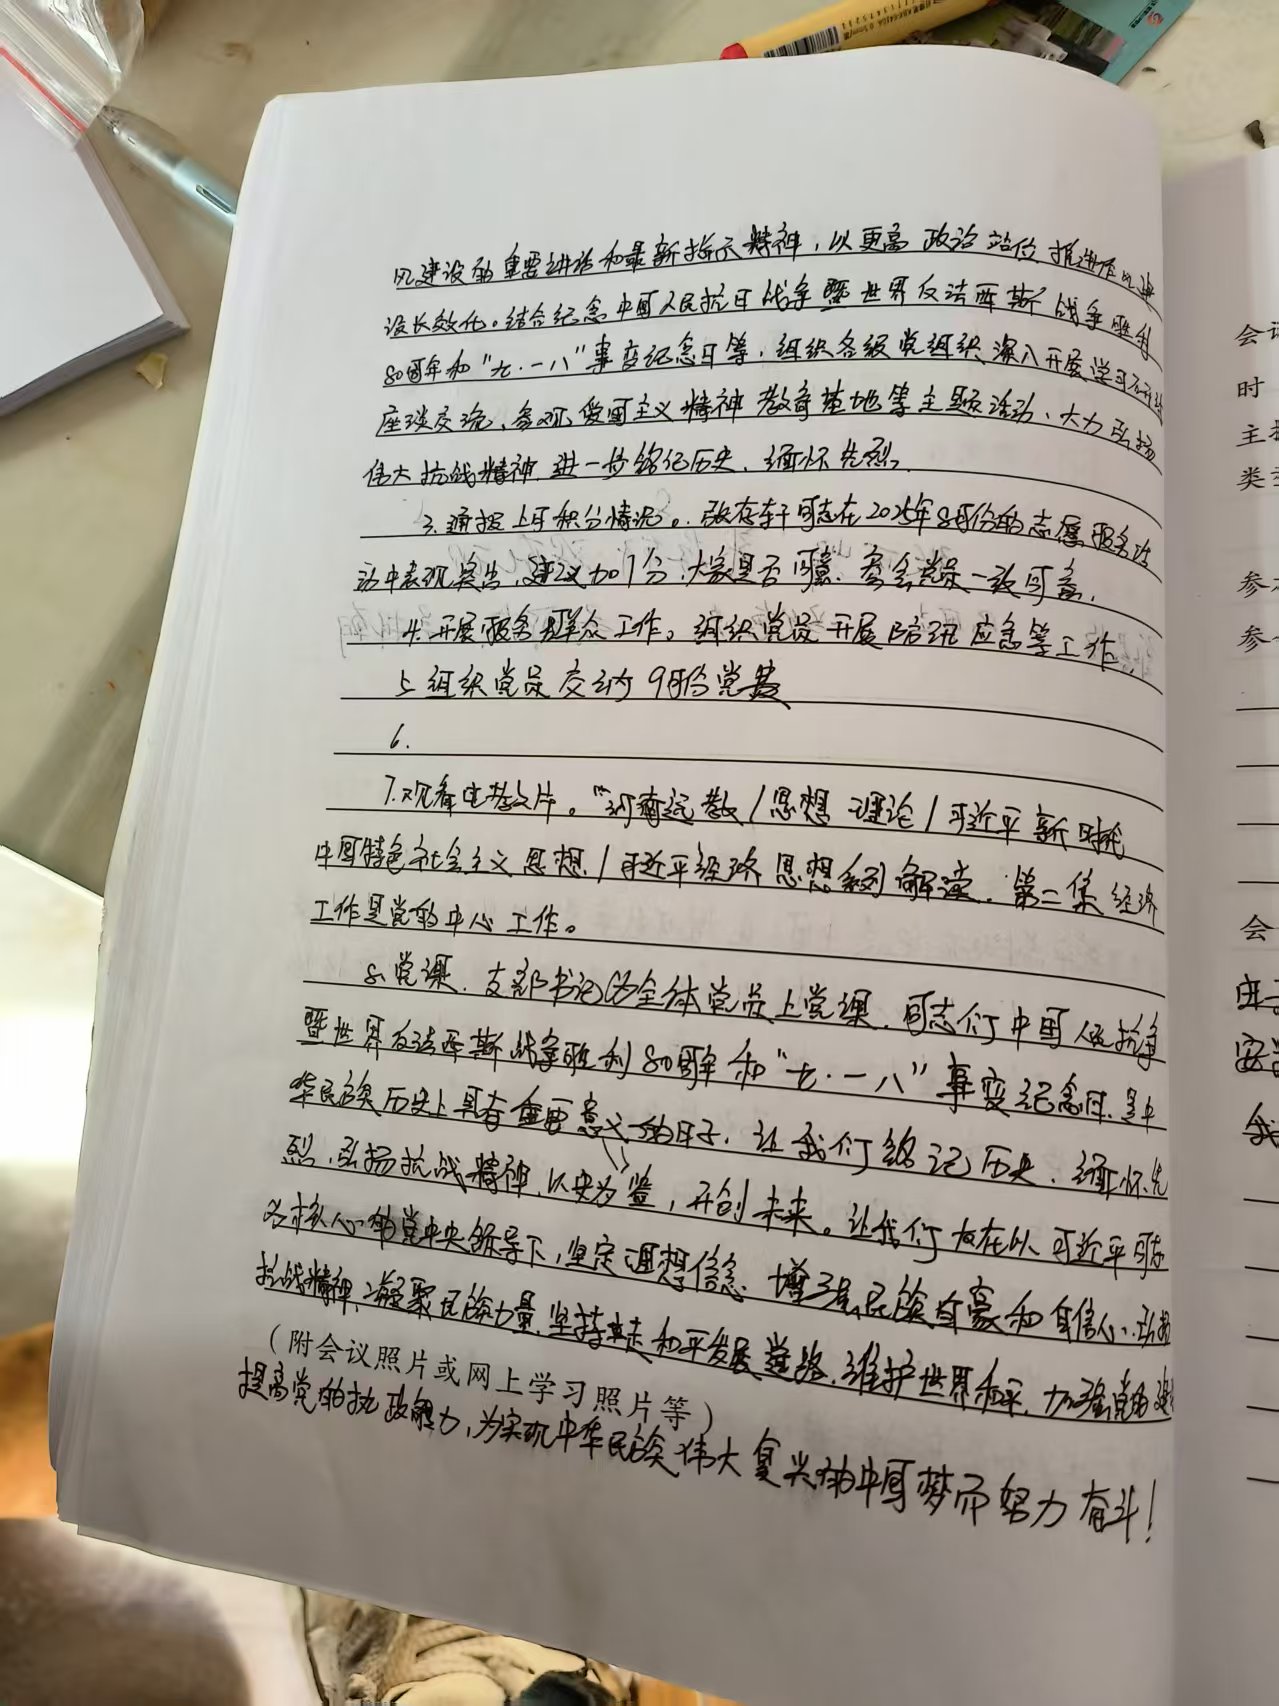 风建设的重要讲话和最新指示精神，以更高政治站位推进作风建
设长效化。结合纪念中国人民抗日战争暨世界反法西斯战争胜利
80周年和"九·一八"事变纪念日等，组织各级党组织深入开展学习研讨
座谈交流、参观爱国主义精神教育基地等主题活动、大力弘扬
伟大抗战精神，进一步铭记历史、缅怀先烈。
3.通报上月积分情况。张存轩同志在2025年8月份的志愿服务活
动中表现突出，建议加1分，大家是否同意，参会党员一致同意。
4.开展服务群众工作。组织党员开展防汛应急等工作，
5.组织党员交纳9月份党费
6.
7.观看电教片。"河南远教/思想理论/习近平新时代
中国特色社会主义思想/习近平经济思想系列解读，第二集经济
工作是党的中心工作。
8.党课，支部书记为全体党员上党课，同志们中国人民抗争
暨世界反法西斯战争胜利80周年和"九·一八"事变纪念日，是中
华民族历史上具有重要意义的日子，让我们铭记历史，缅怀先
烈，弘扬抗战精神，以史为鉴，开创未来。让我们在以习近平同志
为核心的党中央领导下，坚定理想信念，增强民族自豪和自信心，弘扬
抗战精神，凝聚民族力量，坚持走和平发展道路，维护世界和平，加强党的建
（附会议照片或网上学习照片等）
提高党的执政能力，为实现中华民族伟大复兴的中国梦而努力奋斗！
会
时
主
类
参
参
会